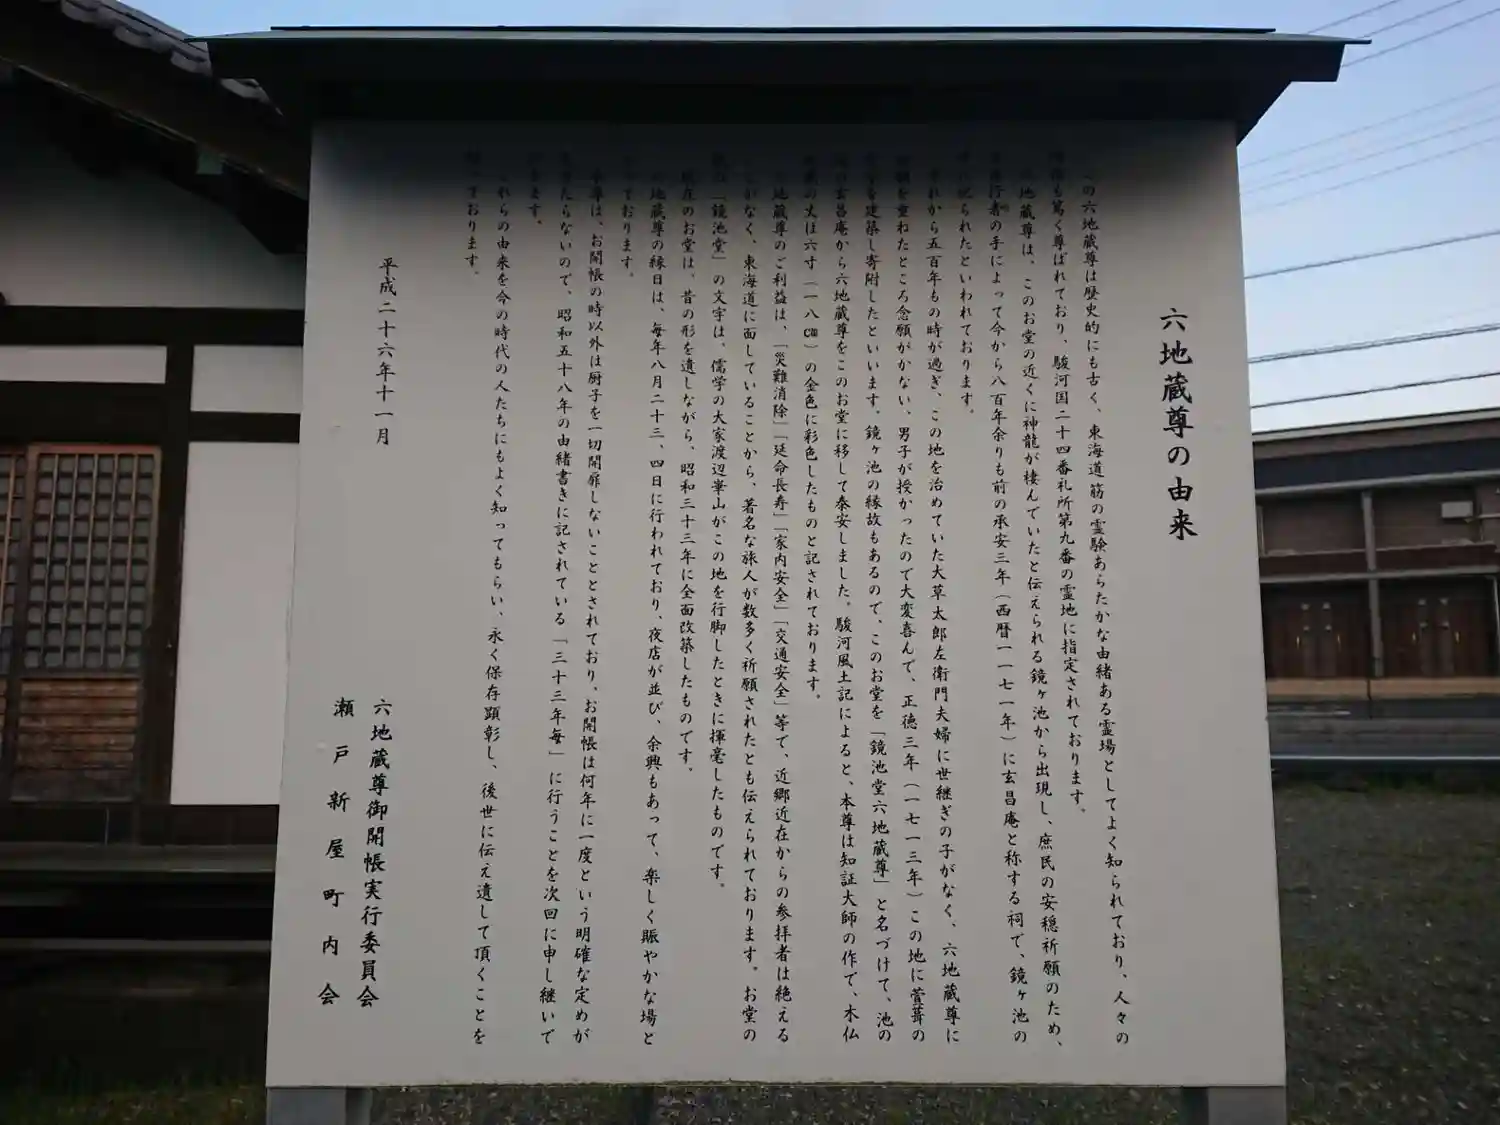 六地蔵尊の由来
この六地蔵尊は歴史的にも古く、東海道筋の霊験あらたかな由緒ある霊場としてよく知られており、人々の
も篤く尊ばれており、駿河国二十四番札所第九番の霊地に指定されております。
地蔵尊は、このお堂の近くに神龍が棲んでいたと伝えられる鏡ヶ池から出現し、庶民の安穏祈願のため、
行者の手によって今から八百年余りも前の承安三年（西暦一一七一年）に玄昌庵と称する祠で、鏡ヶ池の
祀られたといわれております。
それから五百年もの時が過ぎ、この地を治めていた大草太郎左衛門夫婦に世継ぎの子がなく、六地蔵尊に
願を重ねたところ念願がかない、男子が授かったので大変喜んで、正徳三年（一七一三年）この地に萱葺の
を建築し寄附したといいます。鏡ヶ池の縁故もあるので、このお堂を「鏡池堂六地蔵尊」と名づけて、池の
玄昌庵から六地蔵尊をこのお堂に移して奉安しました。駿河風土記によると、本尊は知証大師の作で、木仏
の丈は六寸（一八㎝）の金色に彩色したものと記されております。
地蔵尊のご利益は、「災難消除」「延命長寿」「家内安全」「交通安全」等で、近郷近在からの参拝者は絶える
がなく、東海道に面していることから、著名な旅人が数多く祈願されたとも伝えられております。お堂の
「鏡池堂」の文字は、儒学の大家渡辺崋山がこの地を行脚したときに揮毫したものです。
現在のお堂は、昔の形を遺しながら、昭和三十三年に全面改築したものです。
地蔵尊の縁日は、毎年八月二十三、四日に行われており、夜店が並び、余興もあって、楽しく賑やかな場と
っております。
尊は、お開帳の時以外は厨子を一切開扉しないこととされており、お開帳は何年に一度という明確な定めが
たらないので、昭和五十八年の由緒書きに記されている「三十三年毎」に行うことを次回に申し継いで
ます。
れらの由来を今の時代の人たちにもよく知ってもらい、永く保存顕彰し、後世に伝え遺して頂くことを
っております。
平成二十六年十一月
六地蔵尊御開帳実行委員会
瀬戸新屋町内会